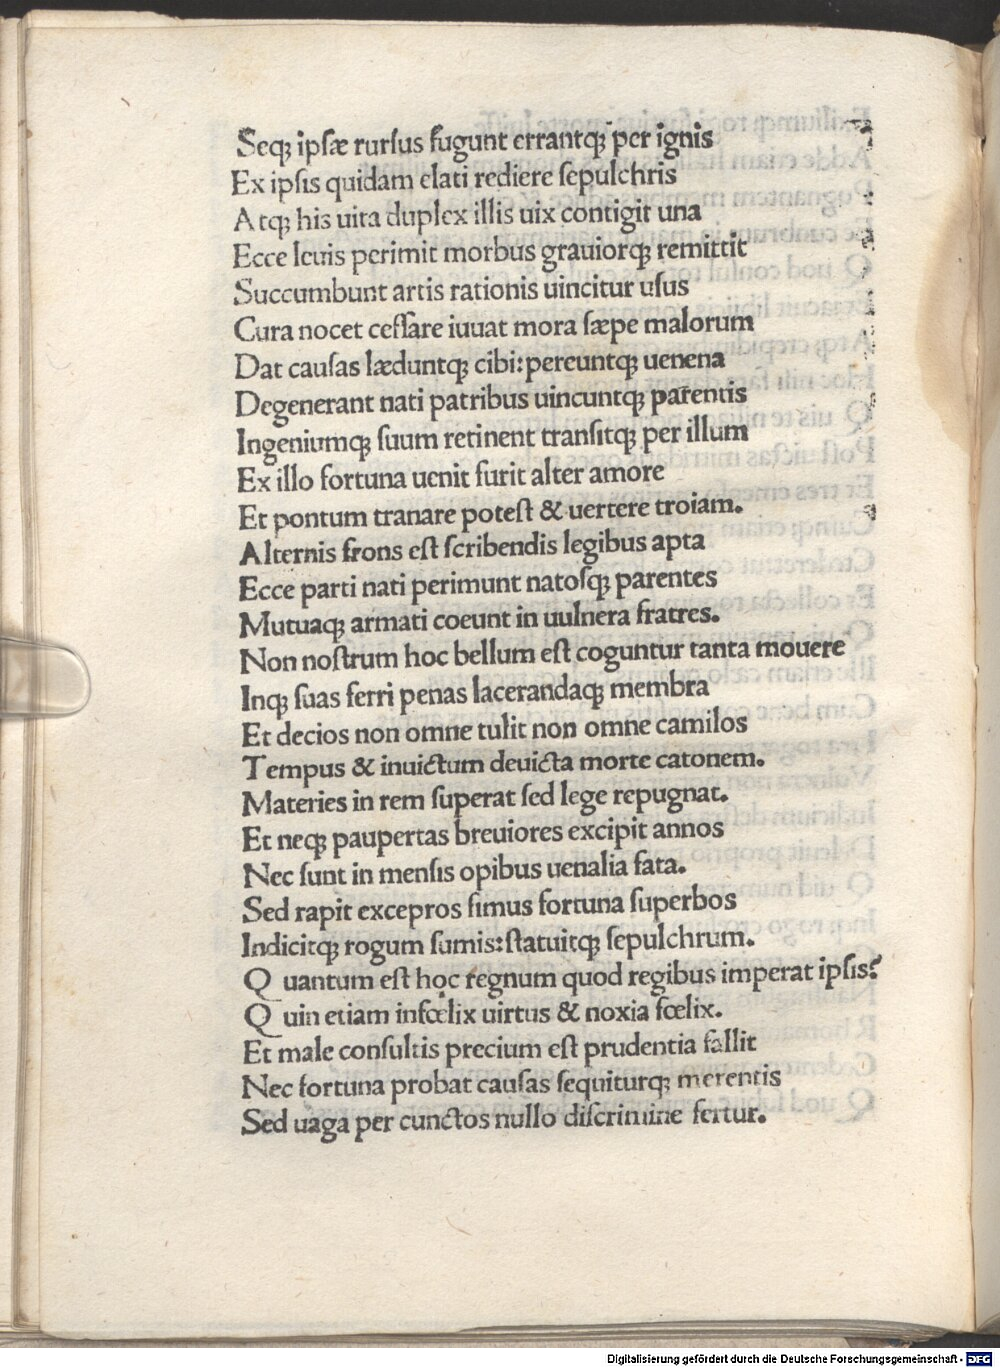 Seq; ipſæ rurſus fugunt errantq; per ignis
Ex ipſis quidam elati rediere ſepulchris
Atq; his uita duplex illis uix contigit una
Ecce leuis perimit morbus grauiorq; remittit
Succumbunt artis rationis uincitur uſus
Cura nocet ceſſare iuuat mora ſæpe malorum
Dat cauſas læduntq; cibi: percuntq; uenena
Degenerant nati patribus uincuntq; parentis
Ingeniumq; ſuum retinent tranſitq; per illum
Ex illo fortuna uenit furit alter amore
Et pontum tranare poteſt & uertere troiam.
Alternis frons eſt ſcribendis legibus apta
Ecce parti nati perimunt natoſq; parentes
Mutuaq; armati coeunt in uulnera fratres.
Non noſtrum hoc bellum eſt coguntur tanta mouere
Inq; ſuas ferri penas lacerandaq; membra
Et decios non omne tulit non omne camilos
Tempus & inuictum deuicta morte catonem.
Materies in rem ſuperat ſed lege repugnat.
Et neq; paupertas breuiores excipit annos
Nec ſunt in menſis opibus uenalia fata.
Sed rapit excepros ſimus fortuna ſuperbos
Indicitq; rogum ſumis: ſtatuitq; ſepulchrum.
Quantum eſt hoc regnum quod regibus imperat ipſis?
Quin etiam infœlix uirtus & noxia fœlix.
Et male conſultis precium eſt prudentia fallit
Nec fortuna probat cauſas ſequiturq; merentis
Sed uaga per cunctos nullo diſcrimine fertur.
Digitalisierung gefördert durch die Deutsche Forschungsgemeinschaft - DFG